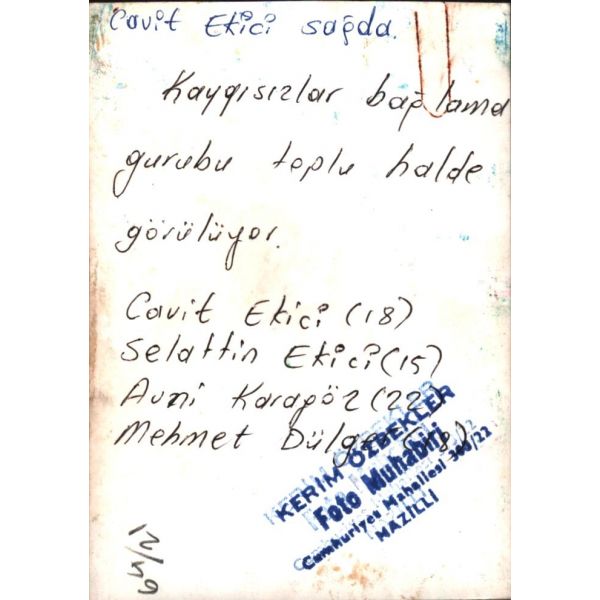 Cavit Ekici sağda.
Kaygısızlar bağlama
gurubu toplu halde
görülüyor.
Cavit Ekici (18)
Selattin Ekici (15)
Avni Karagöz (22)
Mehmet Dülger (18)
KERİM ÖZBEKLER
Foto Muhabiri
Cumhuriyet Mahallesi 306/22
NAZİLLİ